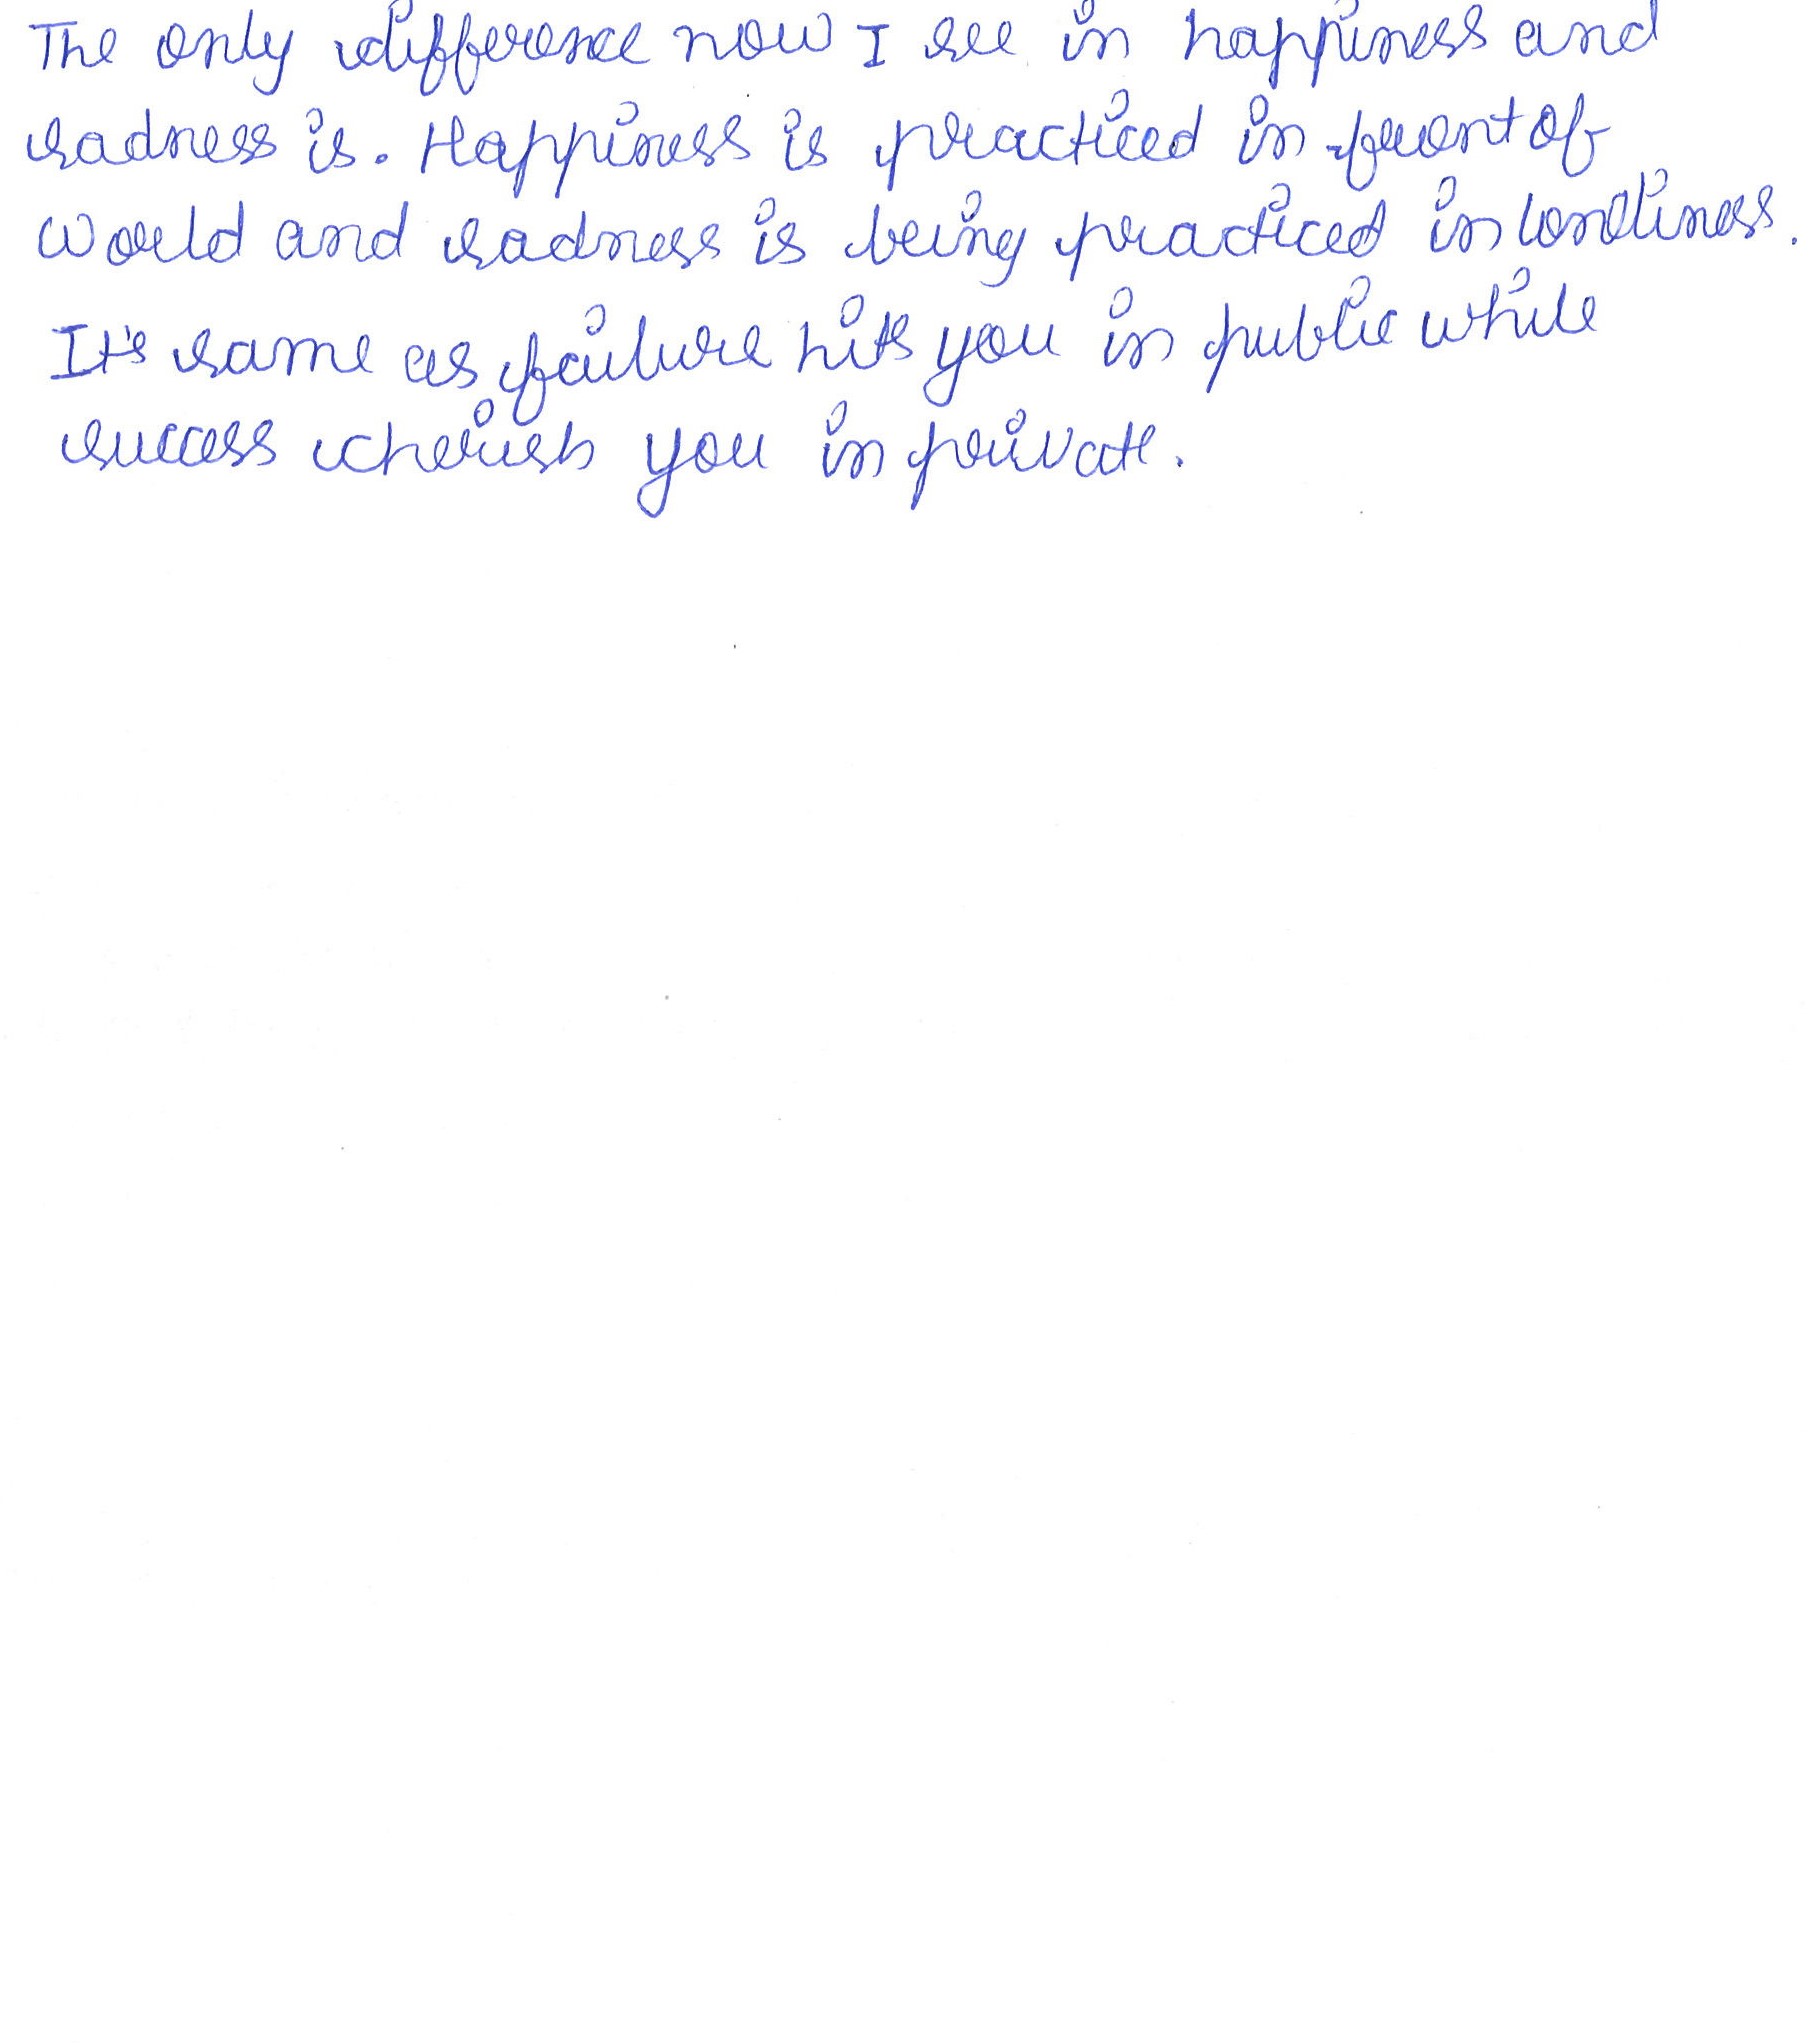 The only difference now I see in happiness and
sadness is. Happiness is practiced in front of
world and sadness is being practiced in loneliness.
It's same as failure hits you in public while
success cherish you in private.